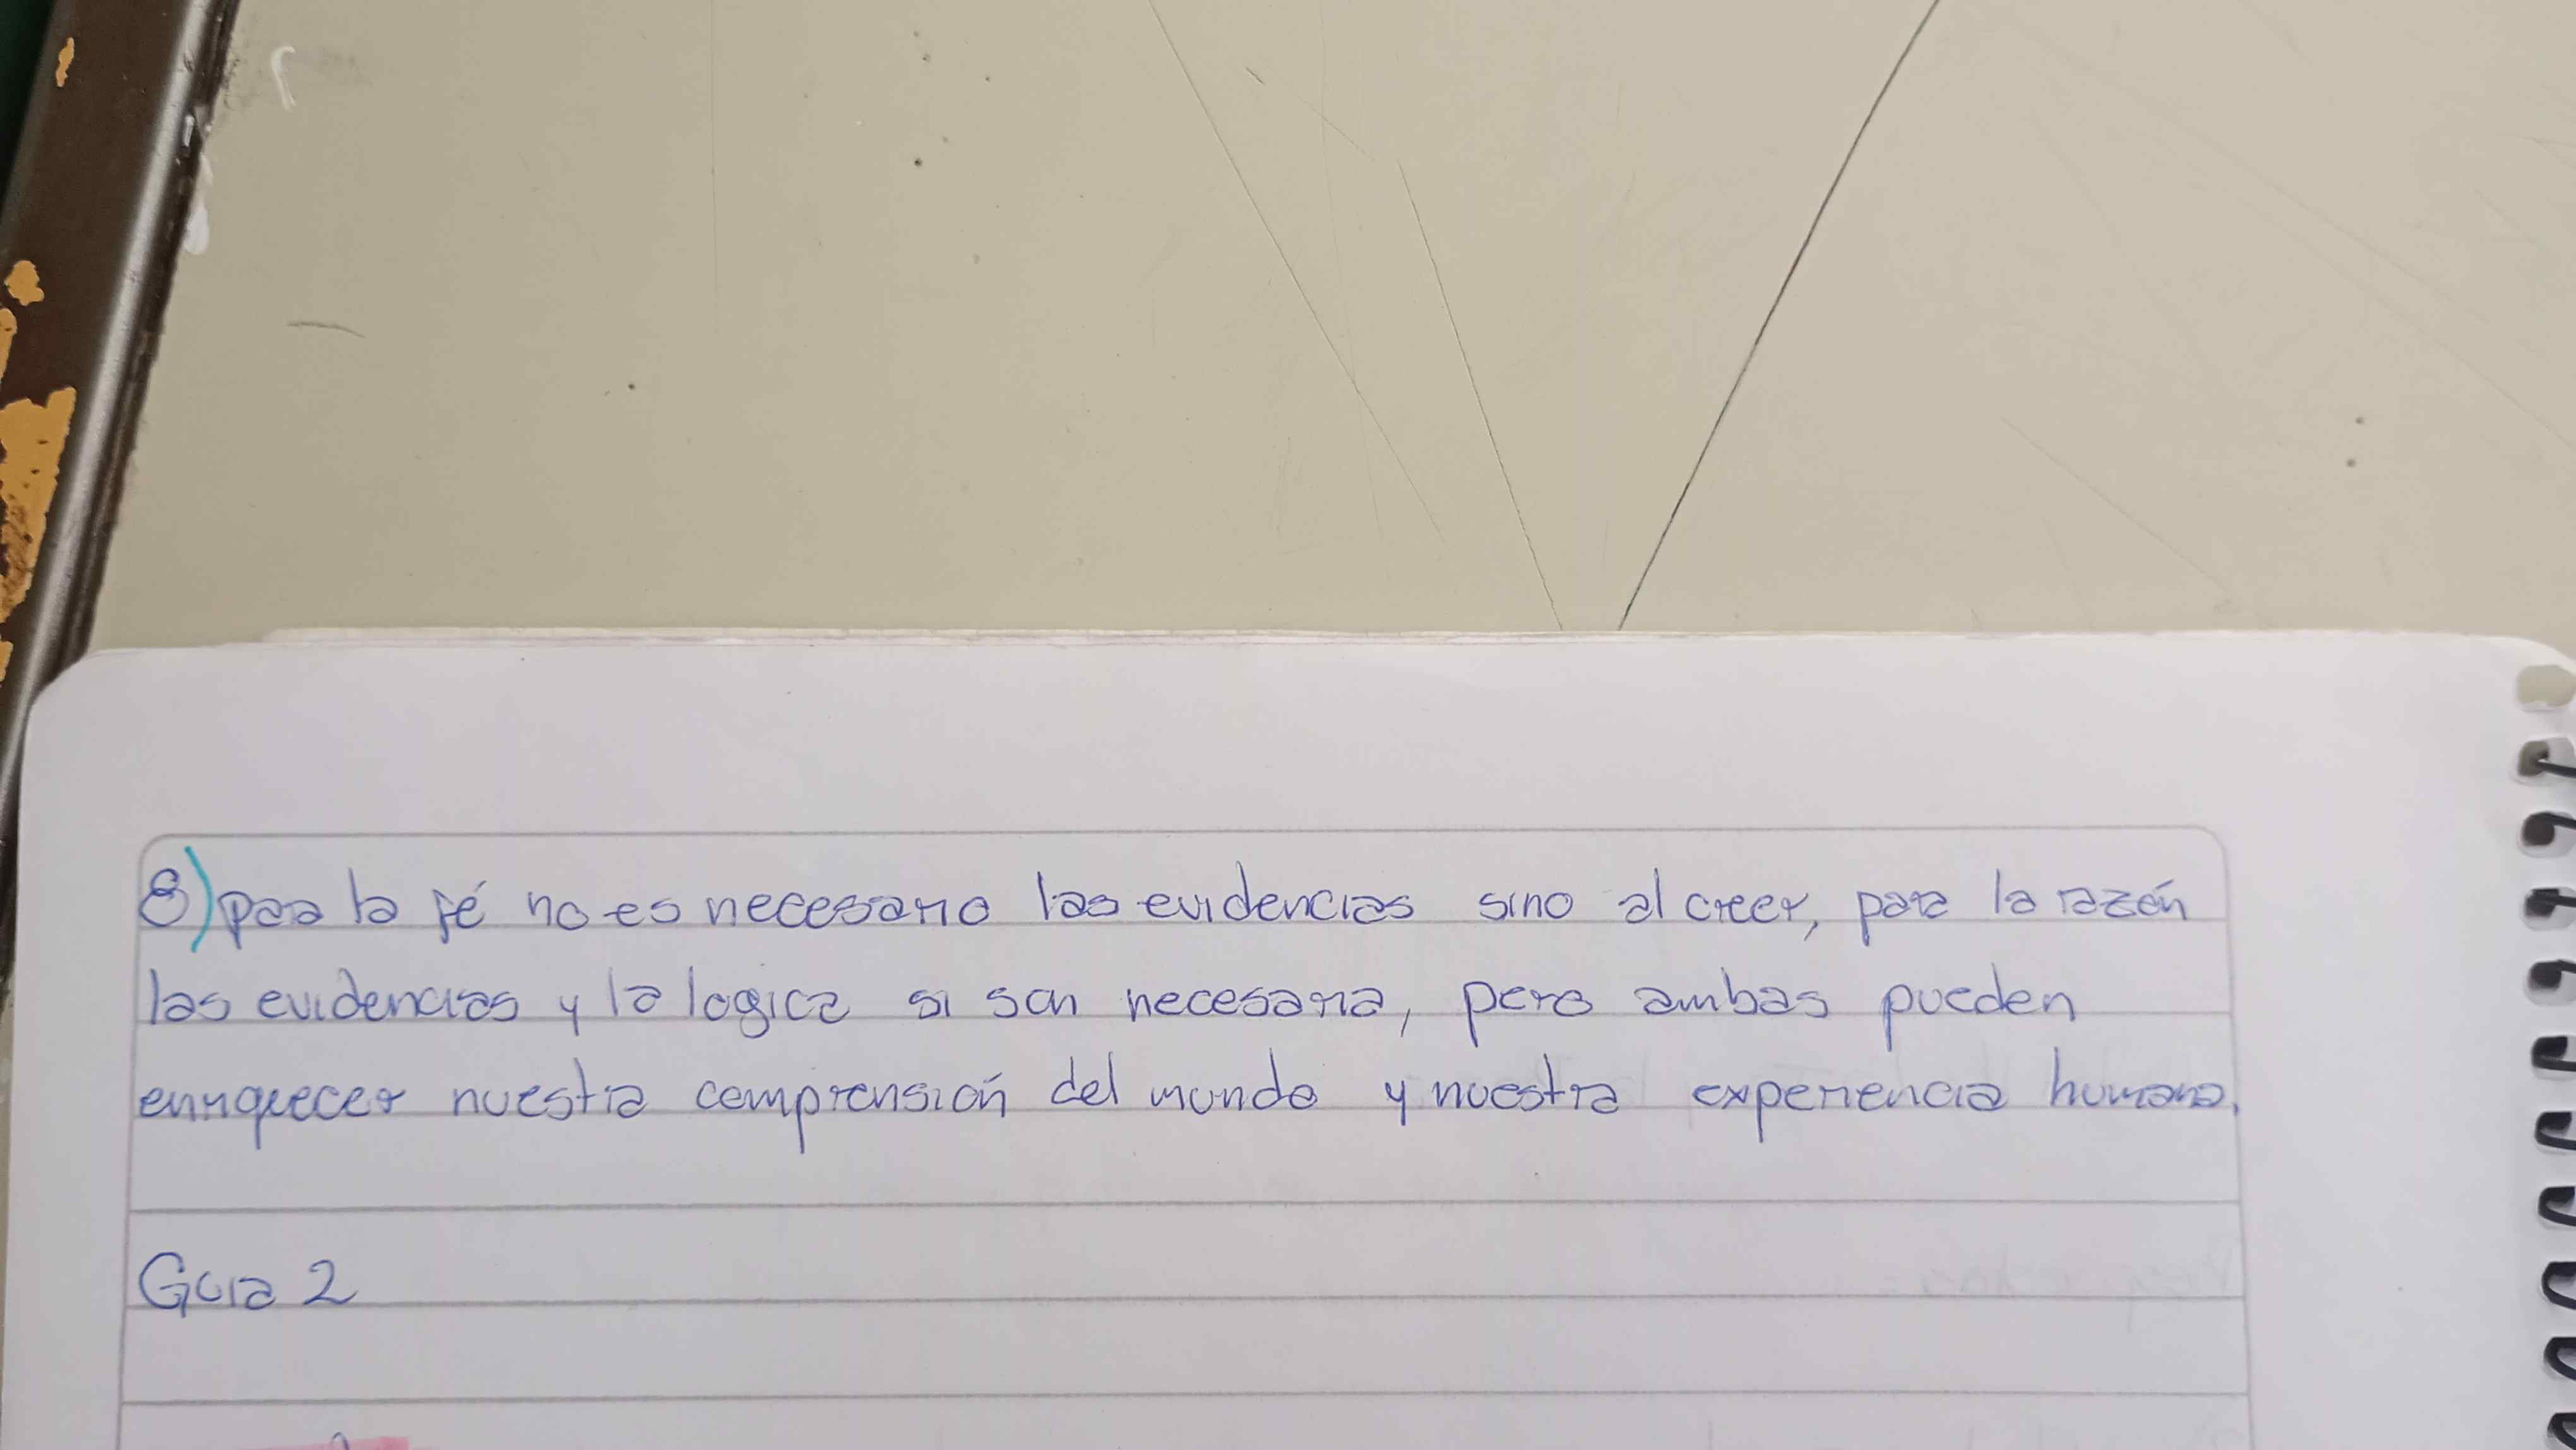 8) para la fé no es necesario las evidencias sino al creer, para la razón
las evidencias y la logica si son necesaria, pero ambas pueden
enriquecer nuestra comprensión del mundo y nuestra experiencia humana.
Guia 2